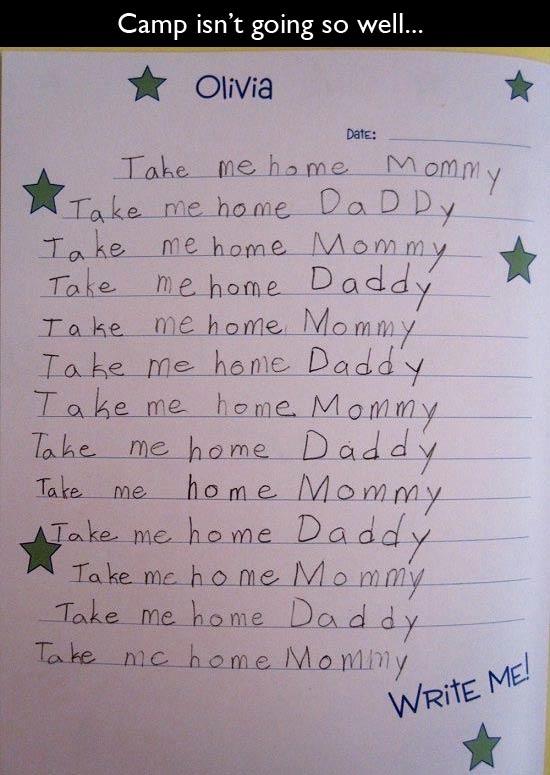 Camp isn't going so well...
Olivia
Date:
Take me home Mommy
Take me home DaDDy
Take me home Mommy
Take me home Daddy
Take me home Mommy
Take me home Daddy
Take me home Mommy
Take me home Daddy
Take me home Mommy
Take me home Daddy
Take me home Mommy
Take me home Daddy
Take me home Mommy
WRitE ME!